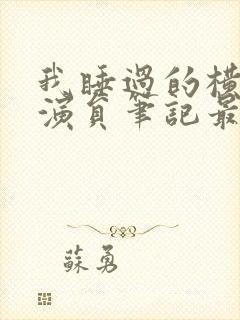 我睡過的橫
演員筆記最
蘇勇